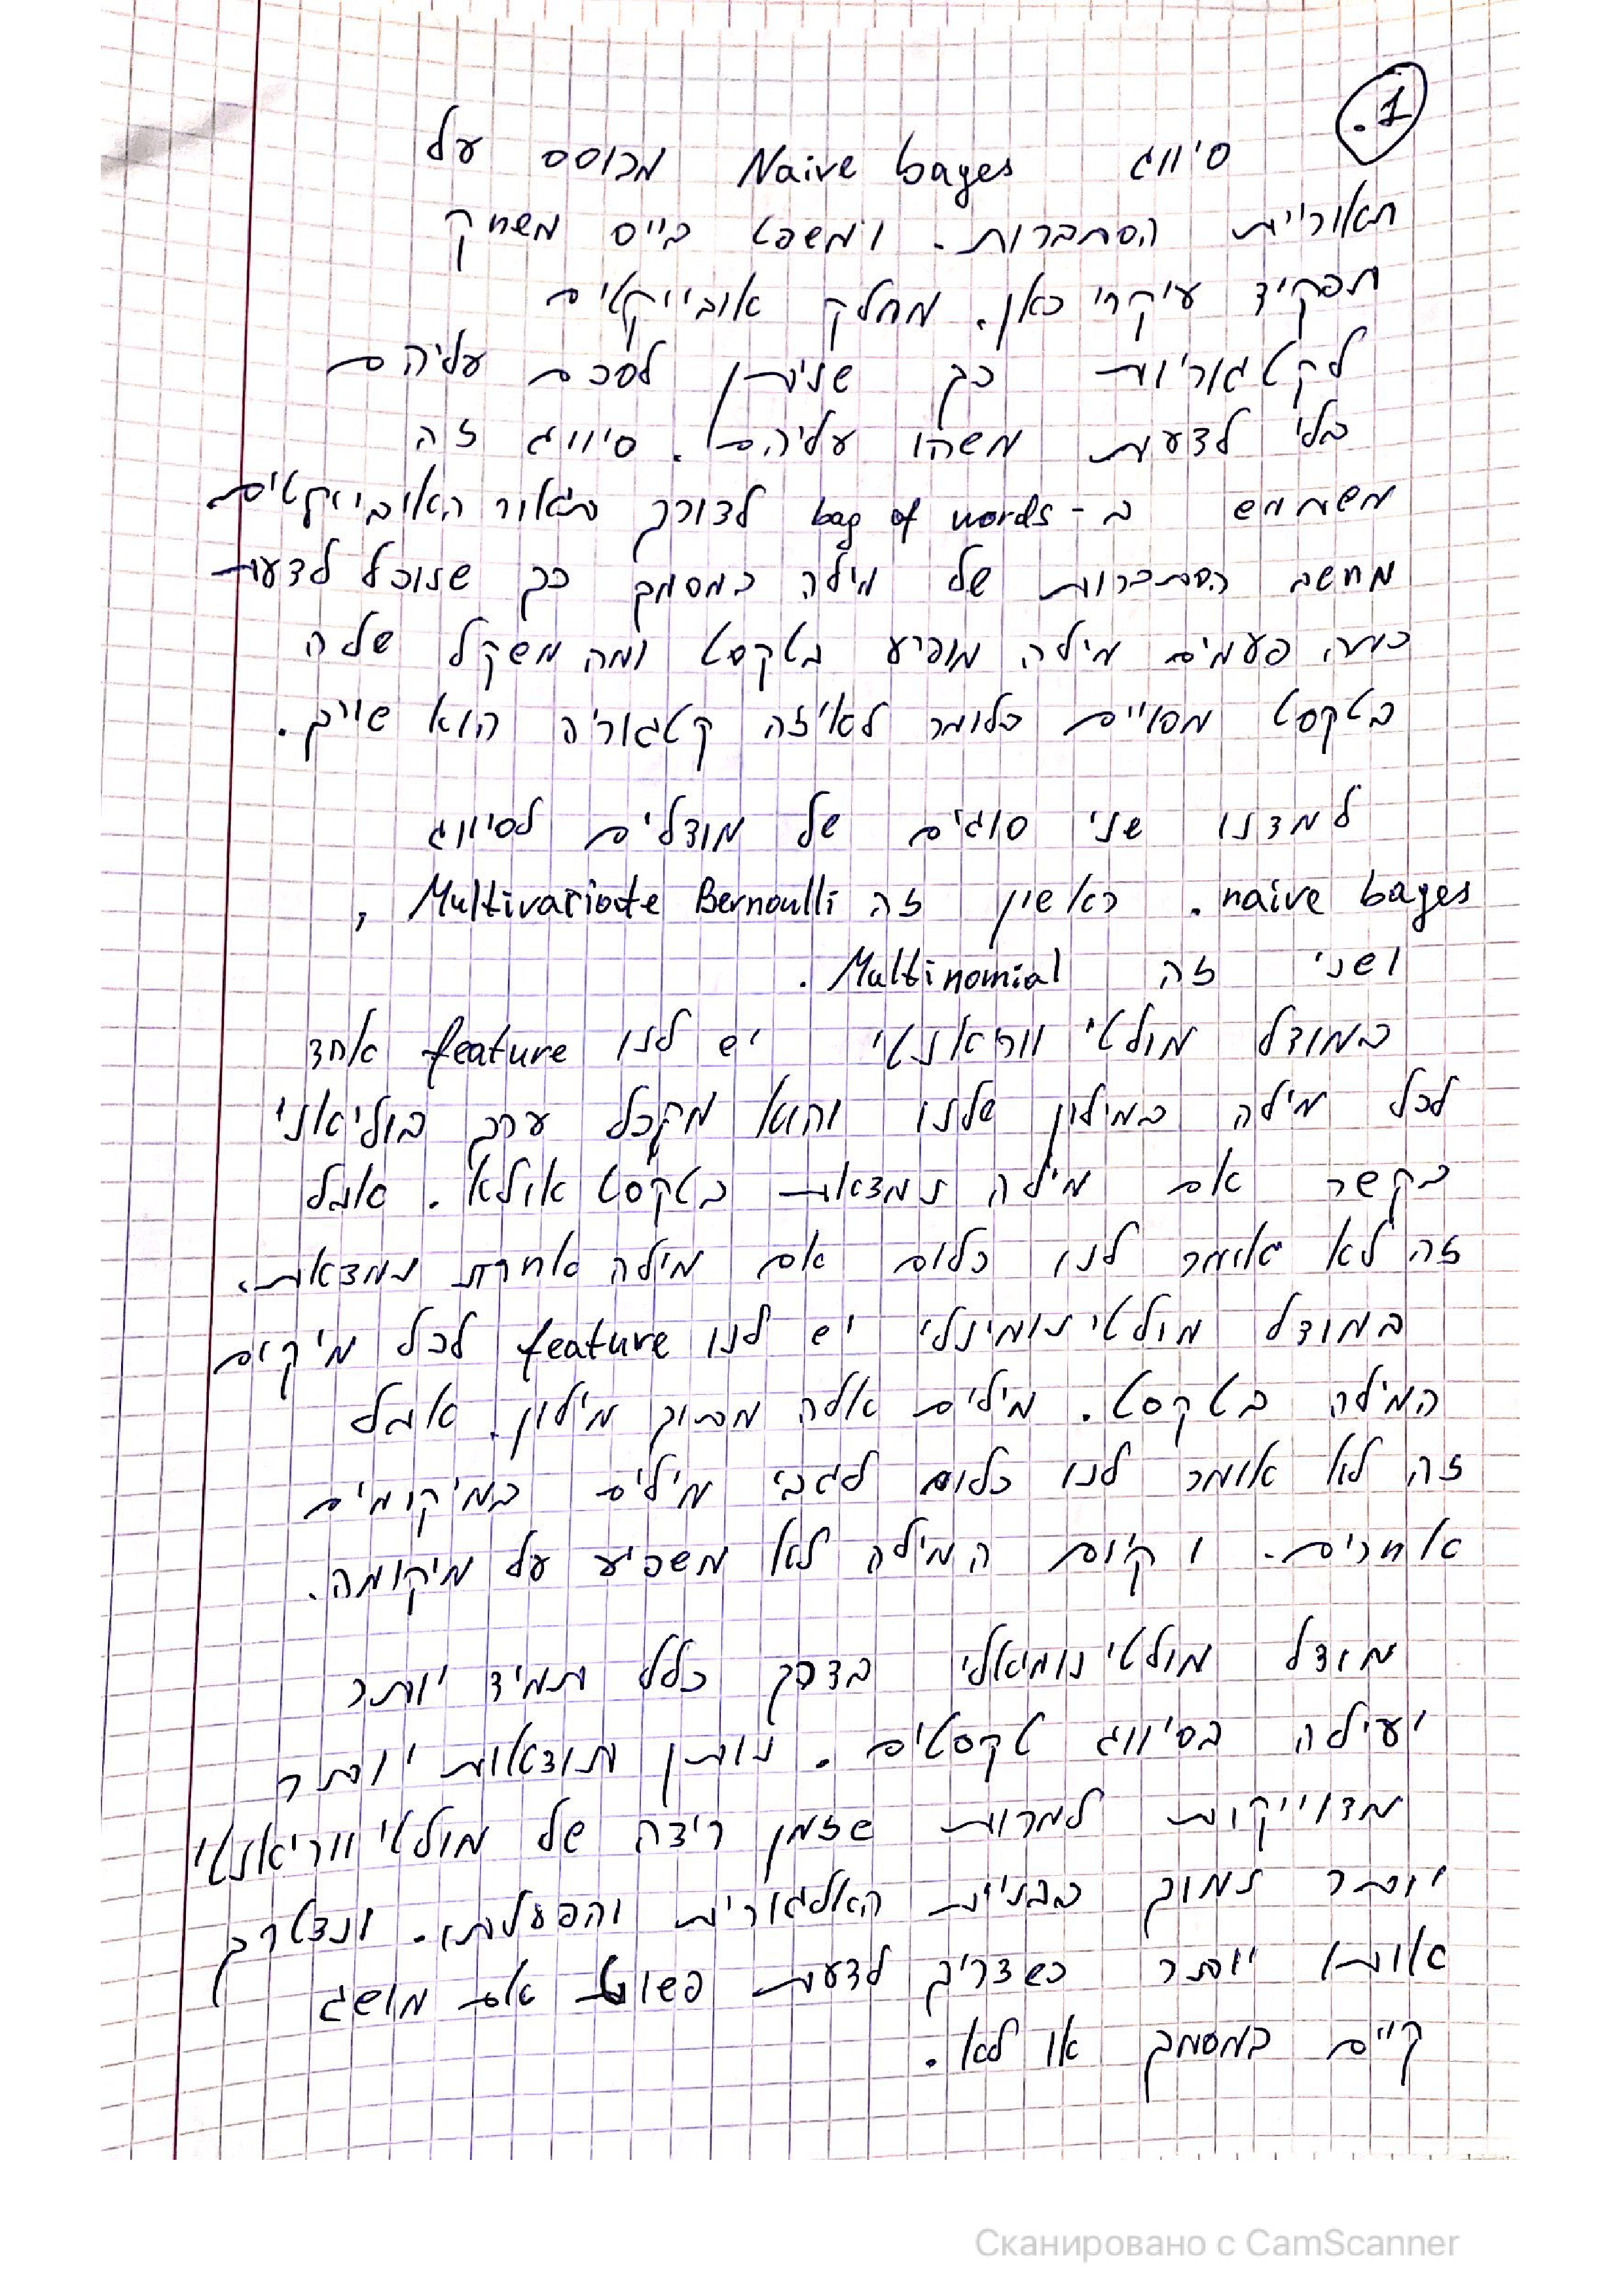 1.
סיווג Naive bayes מבוסס על
תאוריית הסתברות. ומשפט בייס משחק
תפקיד עיקרי כאן. מחלק אובייקטים
לקטגוריות כך שניתן לסכם עליהם
בלי לדעת משהו עליהם. סיווג זה
משתמש ב- bag of words לצורך תאור האובייקטים
מחשב הסתברות של מילה במסמך כך שנוכל לדעת
כמה פעמים מילה מופיע בטקסט ומה משקל שלה
בטקסט מסויים כלומר לאיזה קטגוריה הוא שייך.
למדנו שני סוגים של מודלים לסיווג
naive bayes. ראשון זה Multivariate Bernoulli,
ושני זה Multinomial.
במודל מולטי ווריאנטי יש לנו feature אחד
לכל מילה במילון שלנו והוא מקבל ערך בוליאני
בקשר אם מילה נמצאת בטקסט אולא. אבל
זה לא אומר לנו כלום אם מילה אחרת נמצאת.
במודל מולטינומינלי יש לנו feature לכל מיקום
המילה בטקסט. מילים אלה מתוך מילון. אבל
זה לא אומר לנו כלום לגבי מילים במיקומים
אחרים. וקיום המילה לא משפיע על מיקומה.
מודל מולטינומיאלי בדרך כלל תמיד יותר
יעילה בסיווג טקסטים. נותן תוצאות יותר
מדוייקות למרות שזמן ריצה של מולטי ווריאנטי
יותר נמוך בבניית האלגורית והפעלתו. ונצטרך
אותו יותר כשצריך לדעת פשוט אם מושג
קיים במסמך או לא.
Сканировано с CamScanner